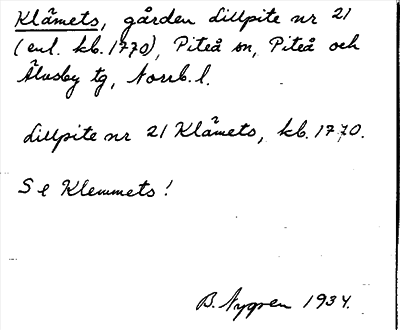 Klämets, gården Lillpite nr 21
(enl. kb. 1770), Piteå sn, Piteå och
Älvsby tg, Norrb. l.
Lillpite nr 21 Klämets, kb. 1770.
Se Klemmets!
B. Nygren 1934.